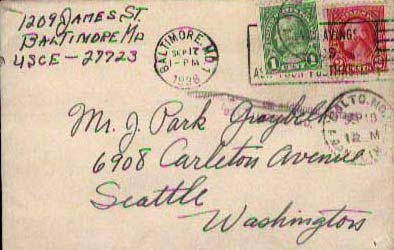 1209 JAMES ST.
BALTIMORE MD
USCE - 27723
BALTIMORE, MD.
SEP 17
1-PM
1928
SAVINGS
ASK YOUR POSTMASTER
1
1
BALTO. MD.
SEP 18
12 M
Mr. J. Park Graybell
6908 Carleton Avenue
Seattle
Washington